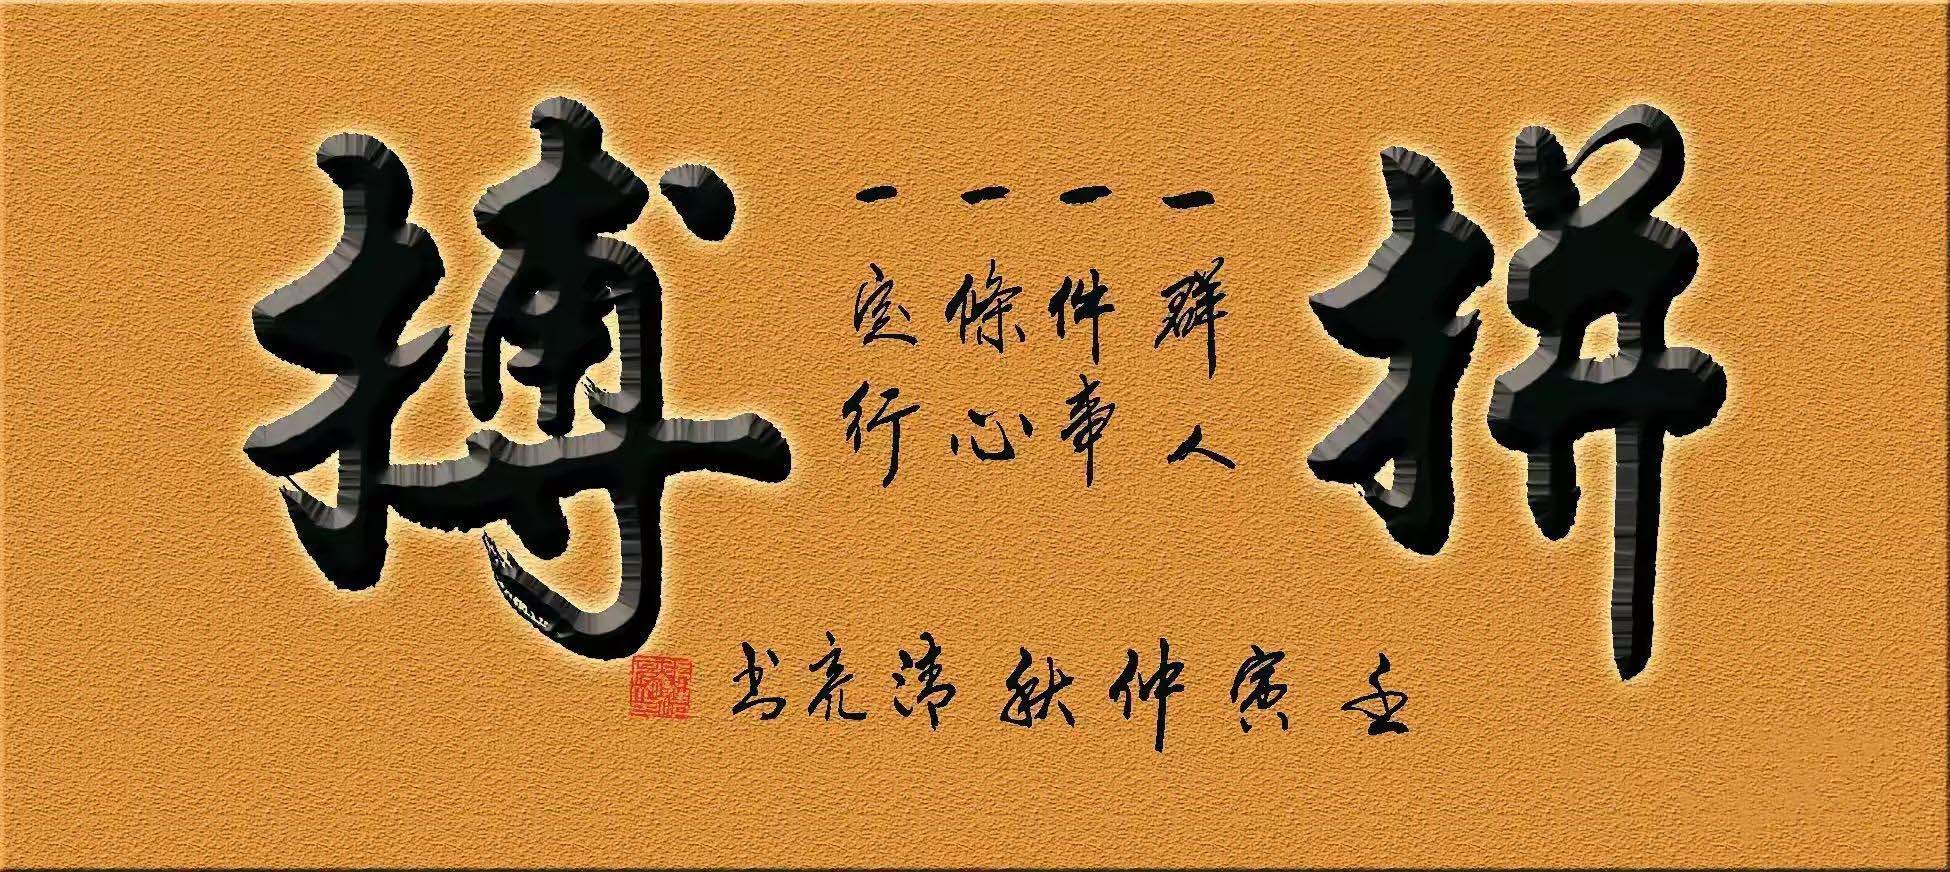 拼搏
一群人
一件事
一條心
一定行
壬寅仲秋清亮书